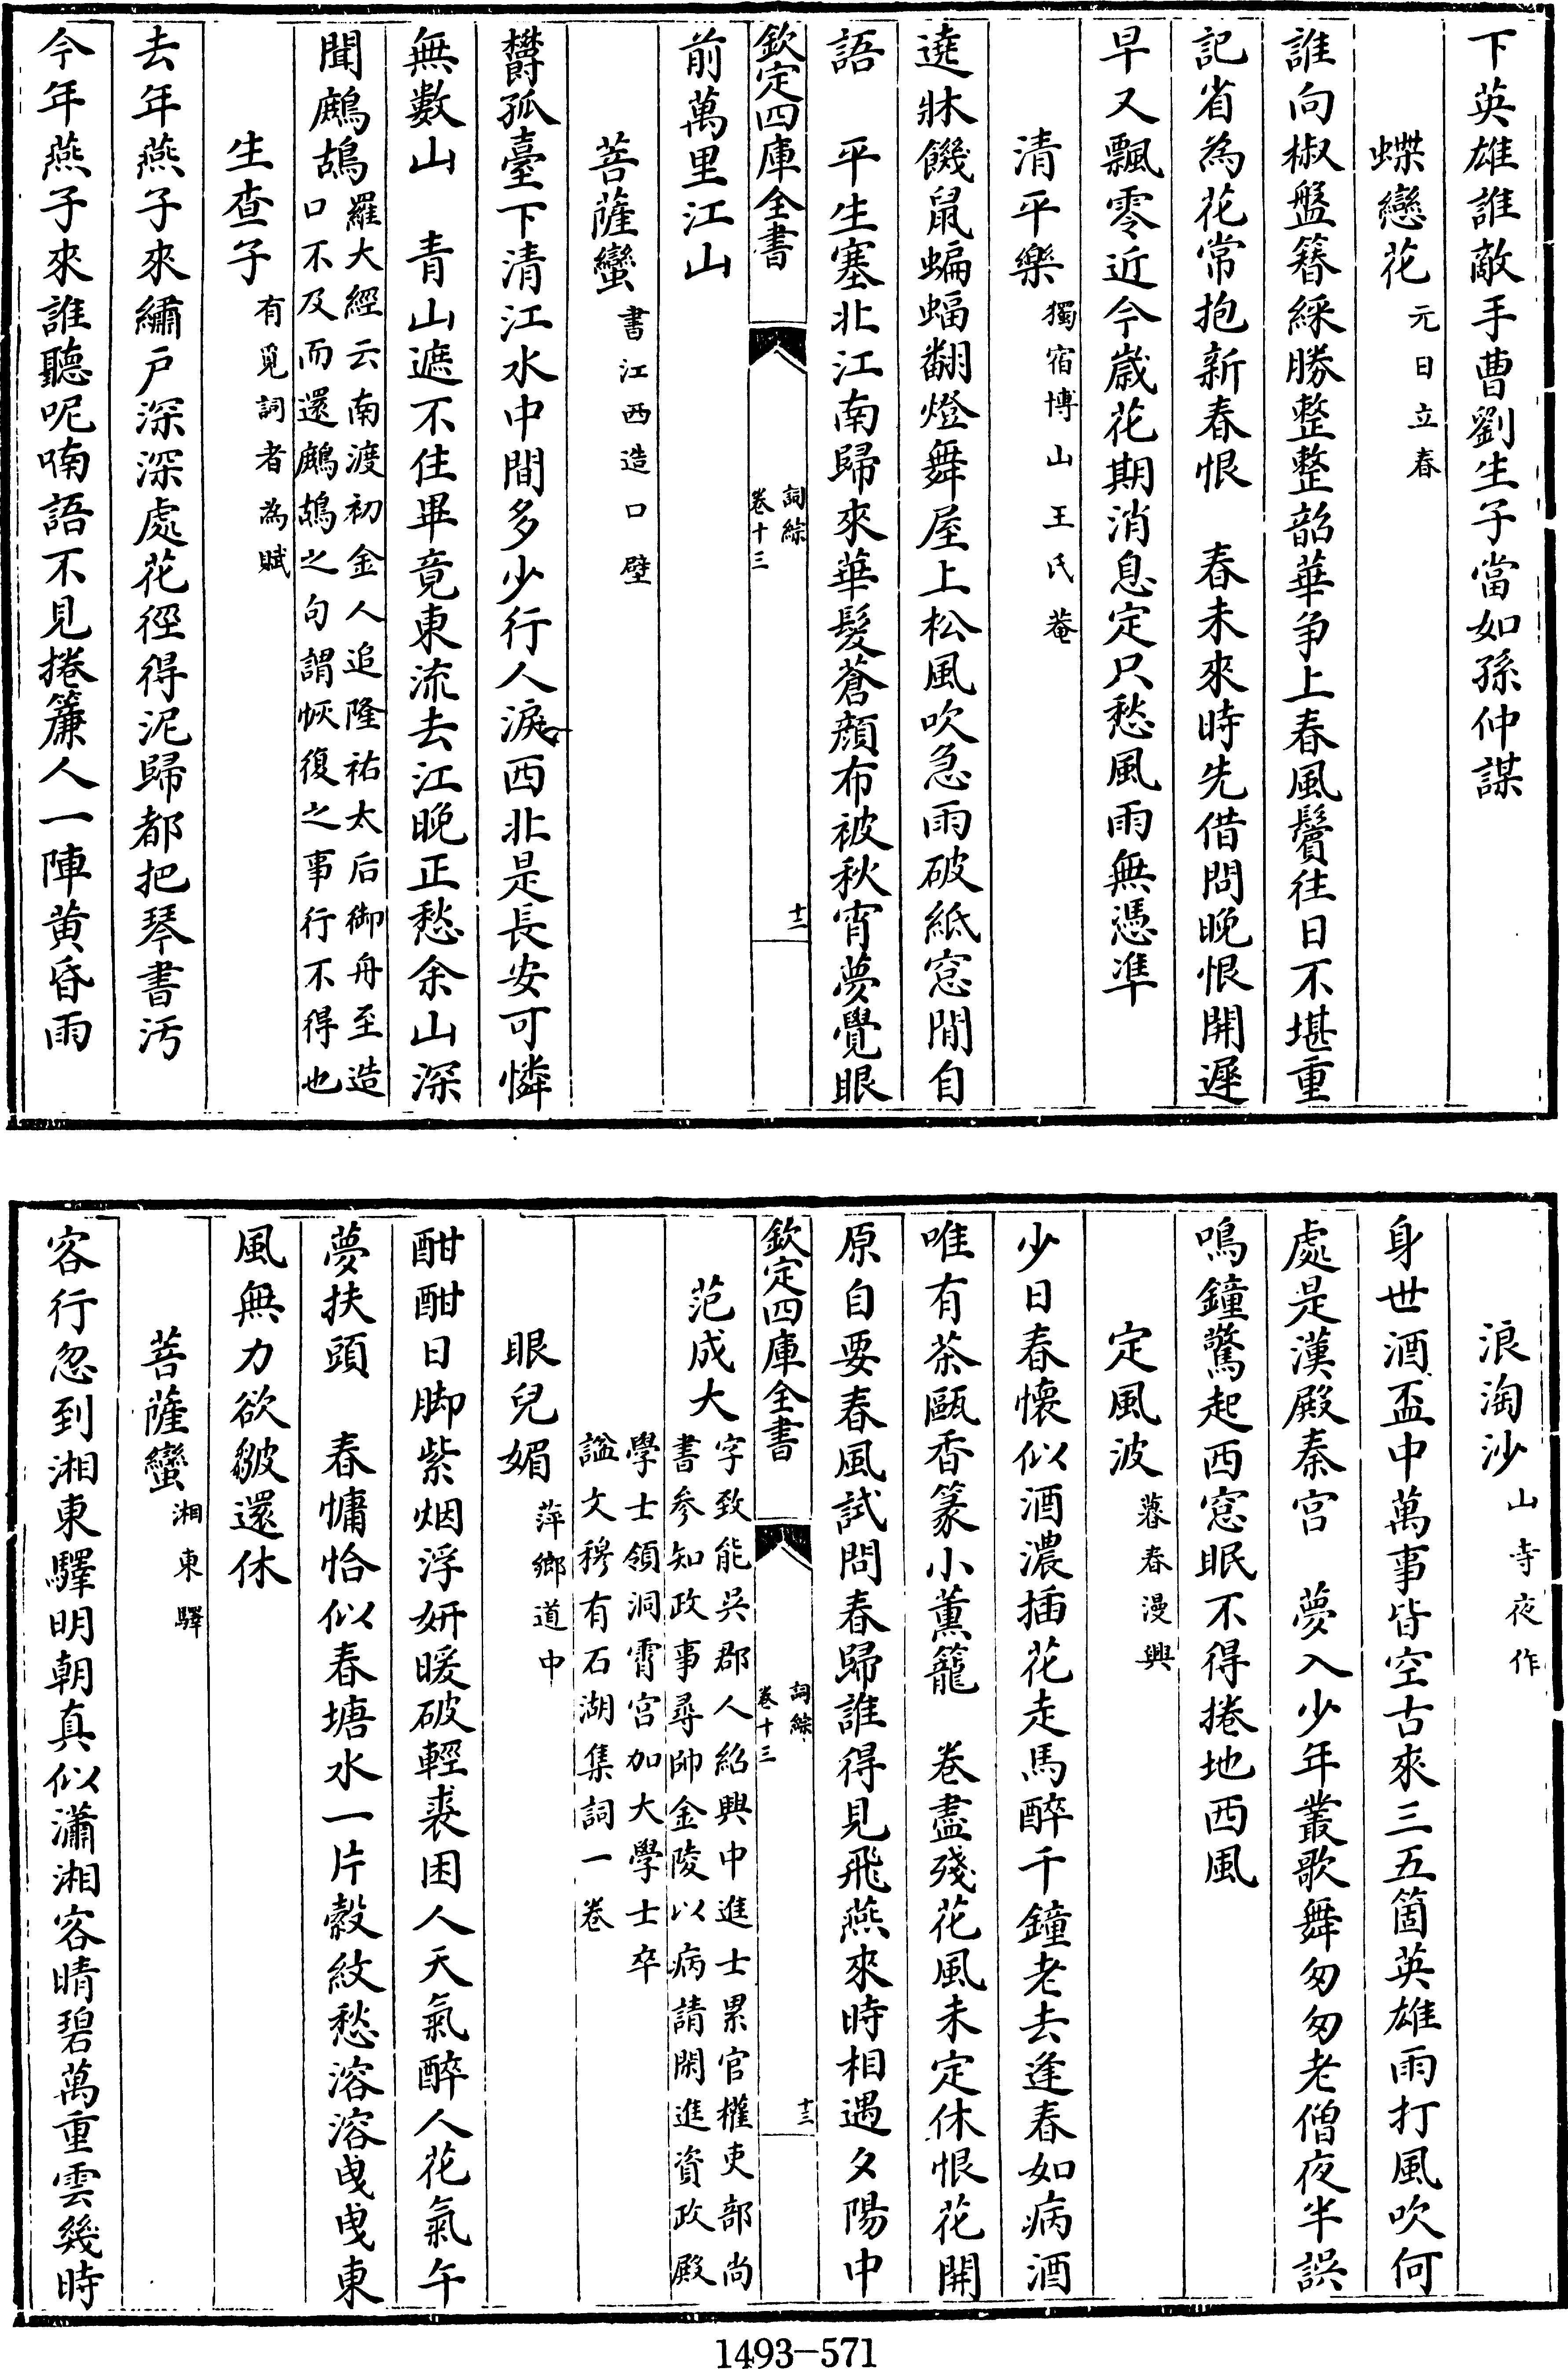 下英雄誰敵手曹劉生子當如孫仲謀
蝶戀花元日立春
誰向椒盤簪綵勝整整韶華争上春風鬢往日不堪重
記省為花常抱新春恨　春未來時先借問晚恨開遲
早又飄零近今歲花期消息定只愁風雨無憑準
清平樂獨宿博山王氏菴
遶牀饑鼠蝙蝠翻燈舞屋上松風吹急雨破紙窓間自
語　平生塞北江南歸來華髮蒼顔布被秋宵夢覺眼
欽定四庫全書
詞綜
卷十三
十二
前萬里江山
菩薩蠻書江西造口壁
欝孤臺下清江水中間多少行人淚西北是長安可憐
無數山　青山遮不住畢竟東流去江晚正愁余山深
聞鷓鴣羅大經云南渡初金人追隆祐太后御舟至造
口不及而還鷓鴣之句謂恢復之事行不得也
生查子有覓詞者為賦
去年燕子來繡戶深深處花徑得泥歸都把琴書汚
今年燕子來誰聽呢喃語不見捲簾人一陣黄昏雨
浪淘沙山寺夜作
身世酒盃中萬事皆空古來三五箇英雄雨打風吹何
處是漢殿秦宫　夢入少年叢歌舞匆匆老僧夜半誤
鳴鐘驚起西窓眠不得捲地西風
定風波暮春漫興
少日春懷似酒濃插花走馬醉千鐘老去逢春如病酒
唯有茶甌香篆小薰籠　卷盡殘花風未定休恨花開
原自要春風試問春歸誰得見飛燕來時相遇夕陽中
欽定四庫全書
詞綜
卷十三
十三
范成大字致能吳郡人紹興中進士累官權吏部尚
書参知政事尋帥金陵以病請閑進資政殿
學士領洞霄宫加大學士卒
諡文穆有石湖集詞一卷
眼兒媚萍鄉道中
酣酣日脚紫烟浮妍暖破輕裘困人天氣醉人花氣午
夢扶頭　春慵恰似春塘水一片縠紋愁溶溶曳曳東
風無力欲皺還休
菩薩蠻湘東驛
客行忽到湘東驛明朝真似瀟湘客晴碧萬重雲幾時
1493-571